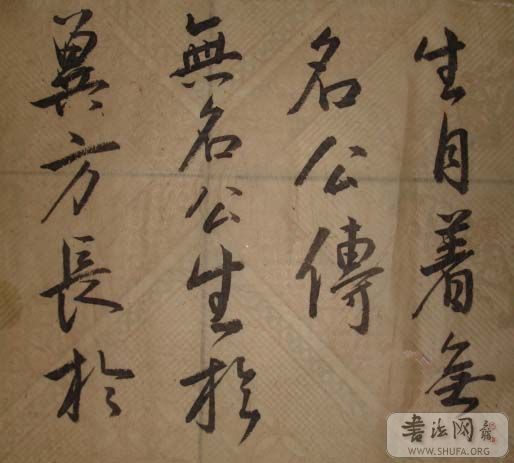 生自着無
名公傳
無名公生於
冀方長於
书法网
WWW.SHUFA.ORG